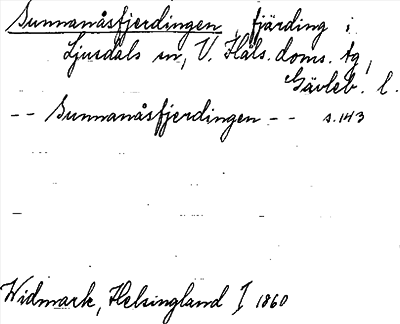 Sunnanåsfjerdingen, fjärding i
Ljusdals sn, V. Häls. doms. tg,
Gävleb. l.
-- Sunnanåsfjerdingen -- s. 143
Widmark, Helsingland I 1860